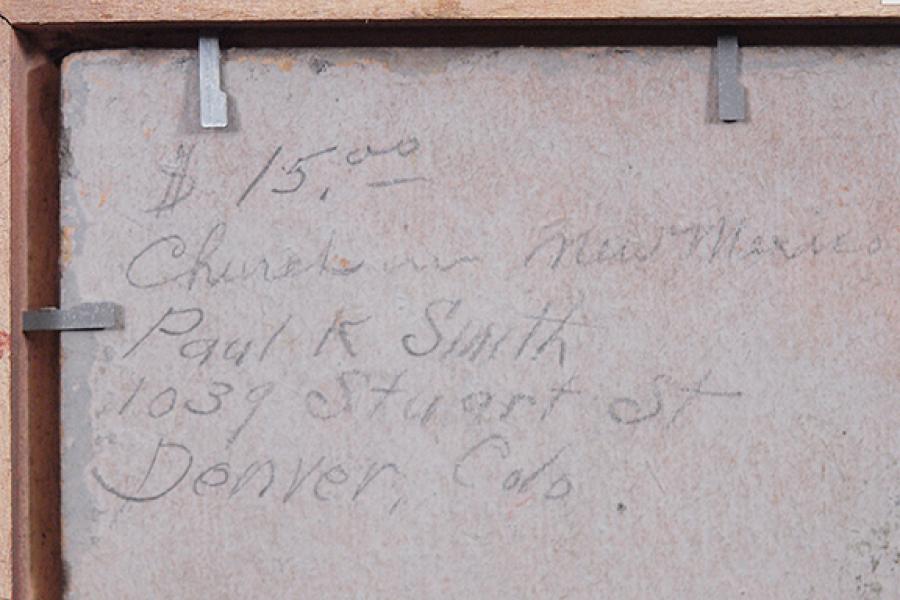 $ 15.00
Church in New Mexico
Paul K Smith
1039 Stuart St
Denver, Colo.